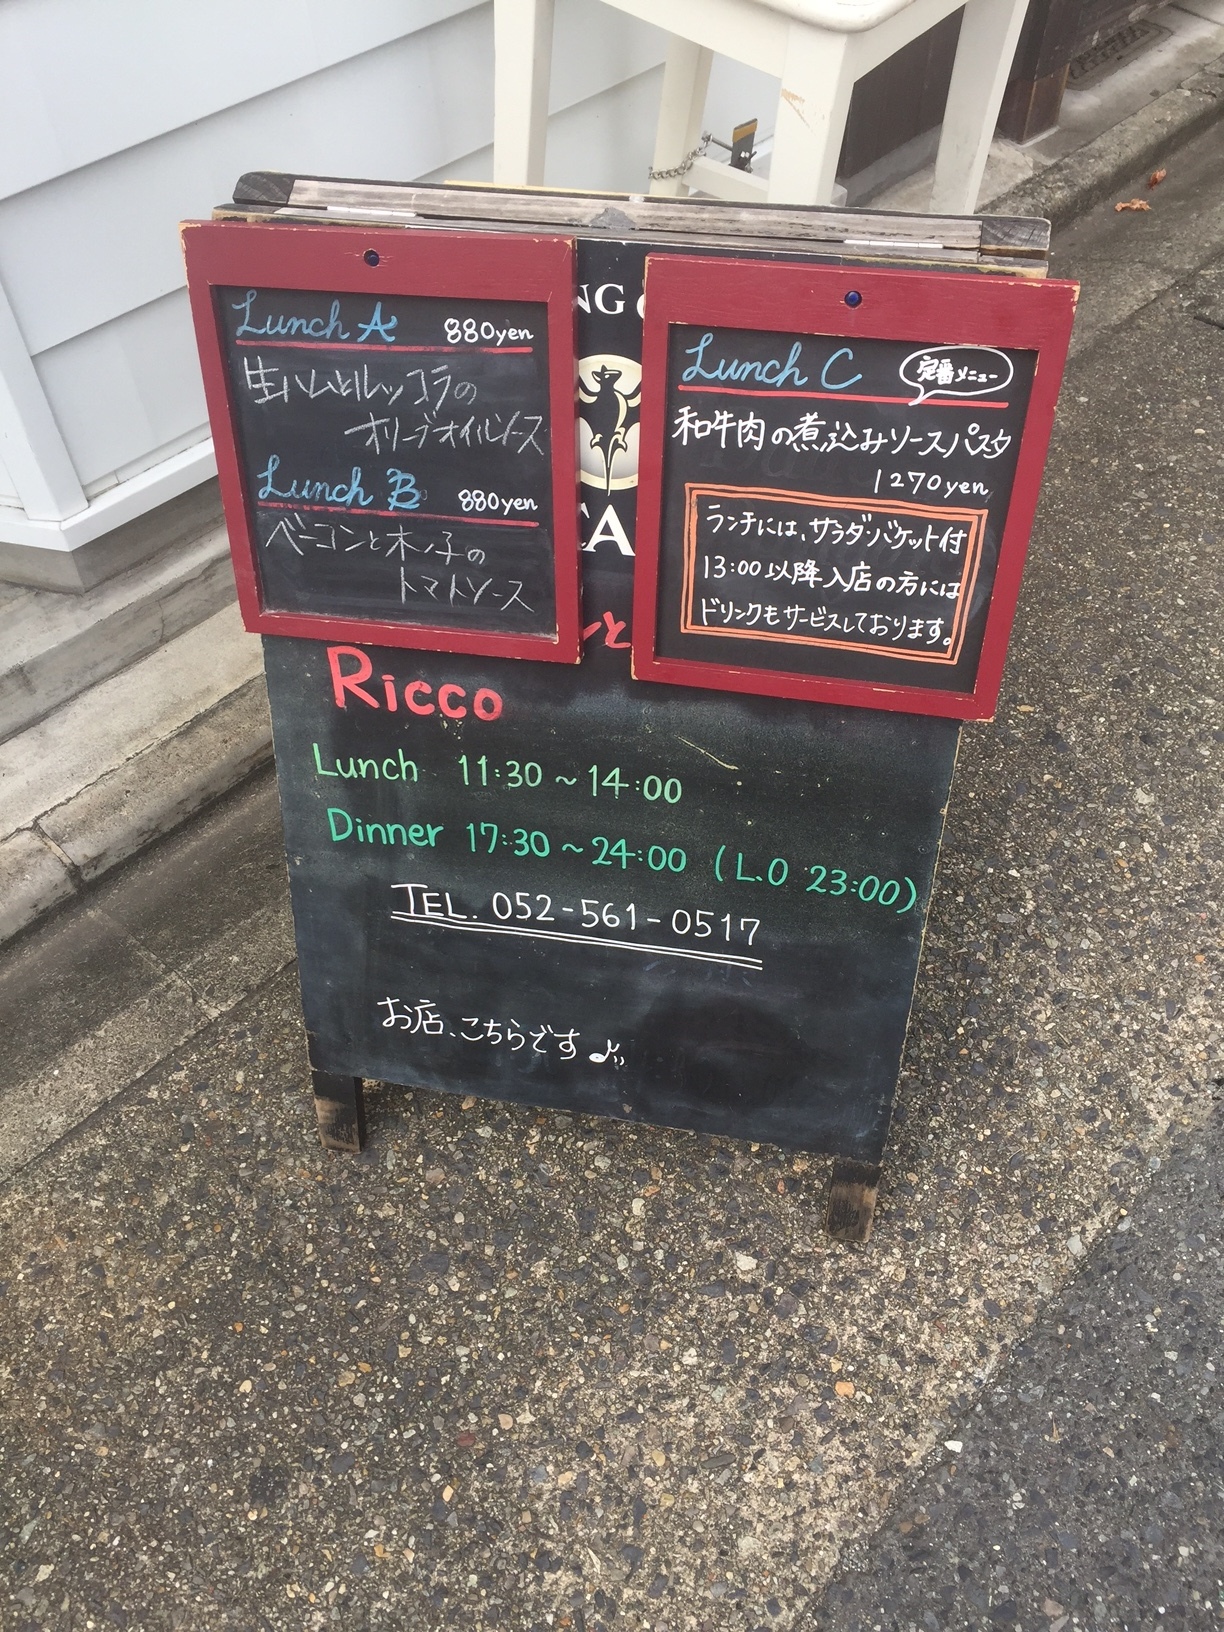 Lunch A 880yen
生ハムとルッコラの
オリーブオイルソース
Lunch B 880yen
ベーコンと木ノ子の
トマトソース
NG
CA
Lunch C 定番メニュー
和牛肉の煮込みソースパスタ
1270yen
ランチには、サラダ・バケット付
13:00以降入店の方には
ドリンクもサービスしております。
と
Ricco
Lunch 11:30～14:00
Dinner 17:30～24:00 (L.O 23:00)
TEL. 052-561-0517
お店、こちらです♪